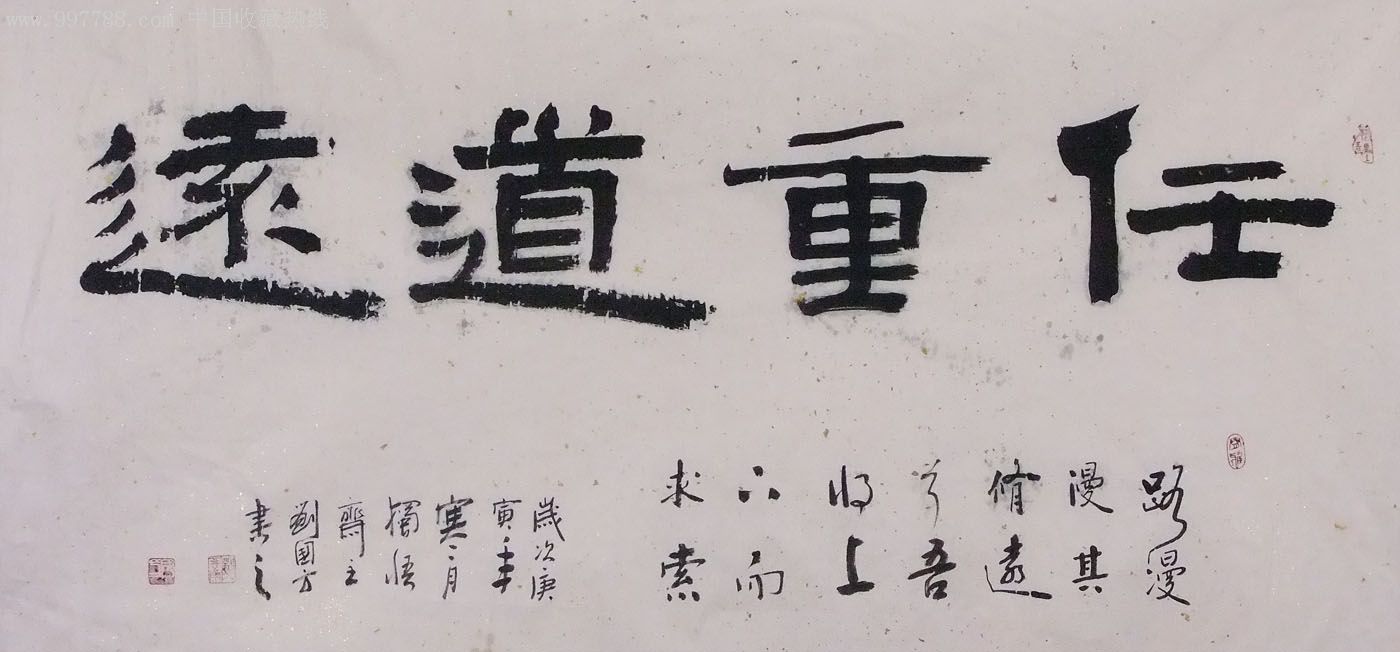 www.997788.com 中国收藏热线
任重道遠
路漫
漫其
脩遠
兮吾
将上
下而
求索
歲次庚
寅年
寒月
獨悟
齋主
劉國方
書之